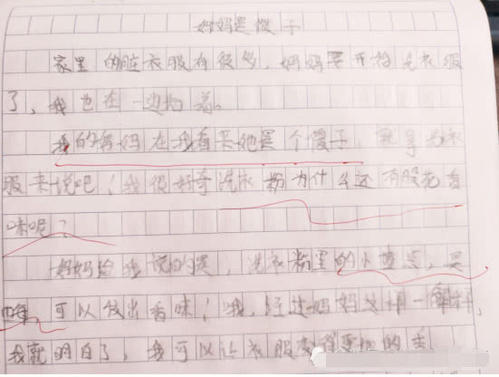 妈妈是傻子
家里的脏衣服有很多,妈妈要开始洗衣服
了,我也在一边
我的妈妈在我看来她是个傻子,就拿洗衣
服来说吧!我很好奇洗衣粉为什么还有股花香
味呢?
妈妈给我说的是,洗衣粉里的小
可以放出香味!我,经过妈妈这样一解释,
我就明白了,我可以让衣服变得更